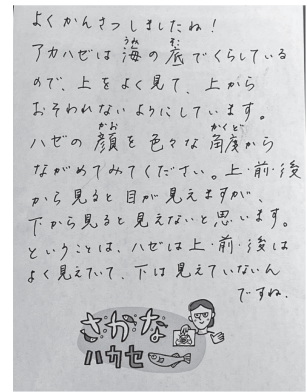 よくかんさつしましたね！
アカハゼは海の底でくらしている
ので、上をよく見て、上から
おそわれないようにしています。
ハゼの顔を色々な角度から
ながめてみてください。上・前・後
から見ると目が見えますが、
下から見ると見えないと思います。
ということは、ハゼは上・前・後は
よく見えていて、下は見えていないん
ですね。
さかな
ハカセ